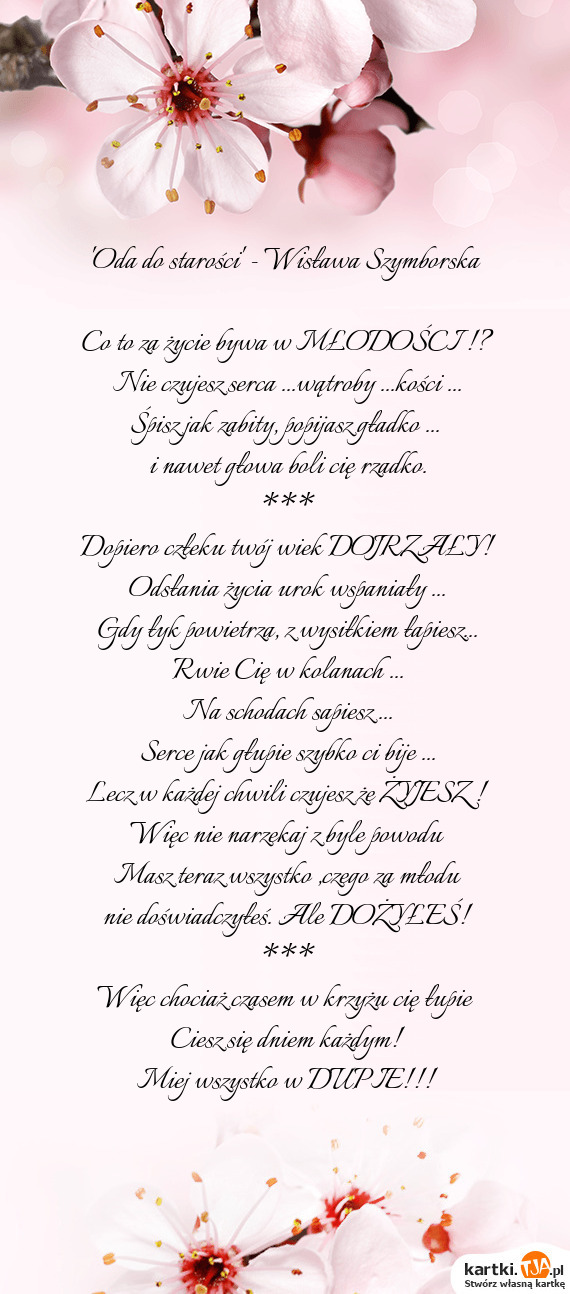 'Oda do starości' - Wisława Szymborska
Co to za życie bywa w MŁODOŚCI !?
Nie czujesz serca ...wątroby ...kości ...
Śpisz jak zabity, popijasz gładko ...
i nawet głowa boli cię rzadko.
***
Dopiero człeku twój wiek DOJRZAŁY!
Odsłania życia urok wspaniały ...
Gdy łyk powietrza, z wysiłkiem łapiesz...
Rwie Cię w kolanach ...
Na schodach sapiesz ...
Serce jak głupie szybko ci bije ...
Lecz w każdej chwili czujesz że ŻYJESZ !
Więc nie narzekaj z byle powodu
Masz teraz wszystko ,czego za młodu
nie doświadczyłeś. Ale DOŻYŁEŚ!
***
Więc chociaż czasem w krzyżu cię łupie
Ciesz się dniem każdym!
Miej wszystko w DUPIE!!!
kartki.TJA.pl
Stwórz własną kartkę